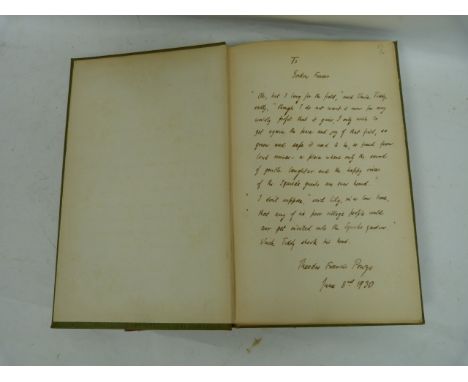 To
Gordon Fraser
"Oh, but I long for the field," said Uncle Tiddy,
sadly, "though I do not want it now for any
worldly profit that it gives I only wish to
get again the peace and joy of that field, so
green and safe it used to be, so freed from
loud noises - a place where only the sound
of gentle laughter and the happy voices
of the Squire's guests are ever heard."
"I don't suppose," said Lily, in a low tone,
that any of us poor village people would
ever get invited into the Squire's garden"
Uncle Tiddy shook his head.
Theodore Francis Powys
June 8 1930